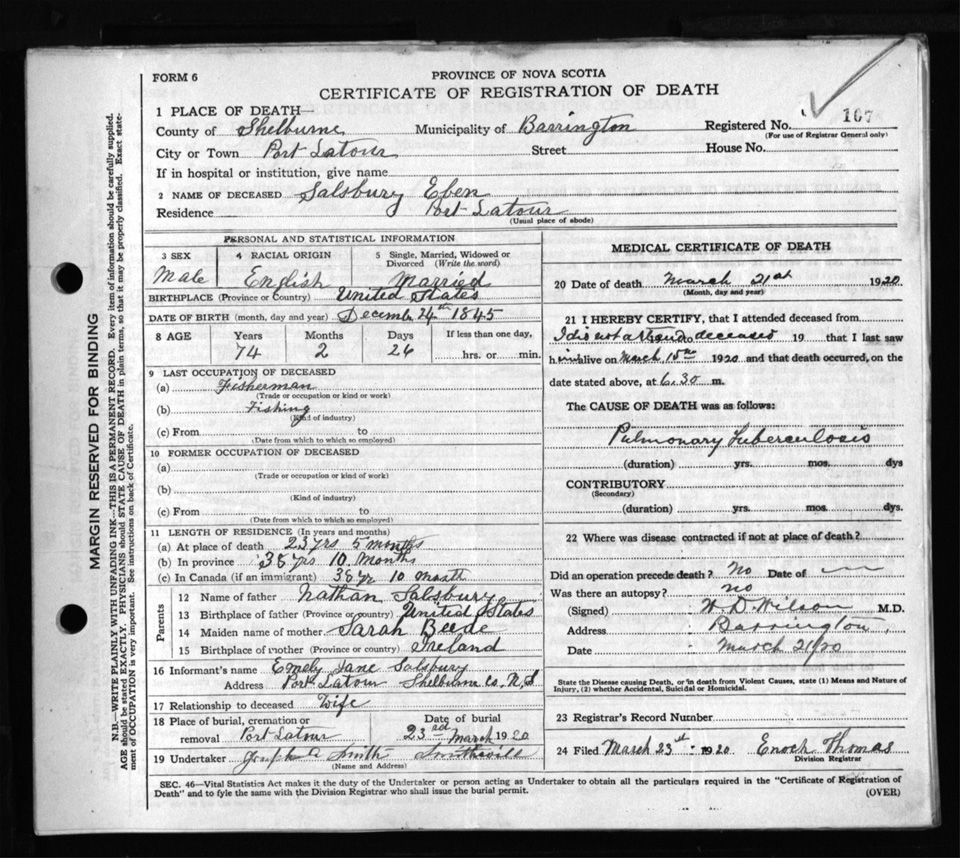 FORM 6
PROVINCE OF NOVA SCOTIA
CERTIFICATE OF REGISTRATION OF DEATH
1 PLACE OF DEATH—
County of Shelburne Municipality of Barrington Registered No. 107
(For use of Registrar General only)
City or Town Port Latour Street House No.
If in hospital or institution, give name
2 NAME OF DECEASED Salsbury Eben
Residence Port Latour
(Usual place of abode)
PERSONAL AND STATISTICAL INFORMATION
3 SEX Male
4 RACIAL ORIGIN English
5 Single, Married, Widowed or Divorced (Write the word) Married
BIRTHPLACE (Province or Country) United States
DATE OF BIRTH (month, day and year) December 24th 1845
8 AGE Years Months Days If less than one day,
74 2 26 hrs. or min.
9 LAST OCCUPATION OF DECEASED
(a) Fisherman
(Trade or occupation or kind or work)
(b) Fishing
(Kind of industry)
(c) From to
(Date from which to which so employed)
10 FORMER OCCUPATION OF DECEASED
(a)
(Trade or occupation or kind of work)
(b)
(Kind of industry)
(c) From to
(Date from which to which so employed)
11 LENGTH OF RESIDENCE (In years and months)
(a) At place of death 23 yrs 5 months
(b) In province 38 yrs 10 Months
(c) In Canada (if an immigrant) 38 yr 10 month
Parents
12 Name of father Nathan Salsbury
13 Birthplace of father (Province or country) United States
14 Maiden name of mother Sarah Beede
15 Birthplace of mother (Province or country) Ireland
16 Informant's name Emely Jane Salsbury
Address Port Latour Shelburne Co. N.S
17 Relationship to deceased Wife
18 Place of burial, cremation or removal Port Latour
Date of burial
23rd March 1920
19 Undertaker Joseph A Smith Smithsvill
(Name and Address)
MEDICAL CERTIFICATE OF DEATH
20 Date of death March 21st 1920
(Month, day and year)
21 I HEREBY CERTIFY, that I attended deceased from
I did not attend deceased 19 that I last saw
him alive on March 15th 1920 and that death occurred, on the
date stated above, at 6.30 m.
The CAUSE OF DEATH was as follows:
Pulmonary Tuberculosis
(duration) yrs. mos. dys
CONTRIBUTORY
(Secondary)
(duration) yrs. mos. dys.
22 Where was disease contracted if not at place of death?
Did an operation precede death? No Date of
Was there an autopsy? no
(Signed) W. D. Wilson M.D.
Address Barrington,
Date March 21/20
State the Disease causing Death, or in death from Violent Causes, state (1) Means and Nature of
Injury, (2) whether Accidental, Suicidal or Homicidal.
23 Registrar's Record Number
24 Filed March 23rd 1920 Enoch Thomas
Division Registrar
SEC. 46—Vital Statistics Act makes it the duty of the Undertaker or person acting as Undertaker to obtain all the particulars required in the "Certificate of Registration of
Death" and to fyle the same with the Division Registrar who shall issue the burial permit.
(OVER)
MARGIN RESERVED FOR BINDING
N.B.—WRITE PLAINLY WITH UNFADING INK—THIS IS A PERMANENT RECORD. Every item of information should be carefully supplied.
AGE should be stated EXACTLY. PHYSICIANS should STATE CAUSE OF DEATH in plain terms, so that it may be properly classified. Exact state-
ment of OCCUPATION is very important. See instructions on back of Certificate.